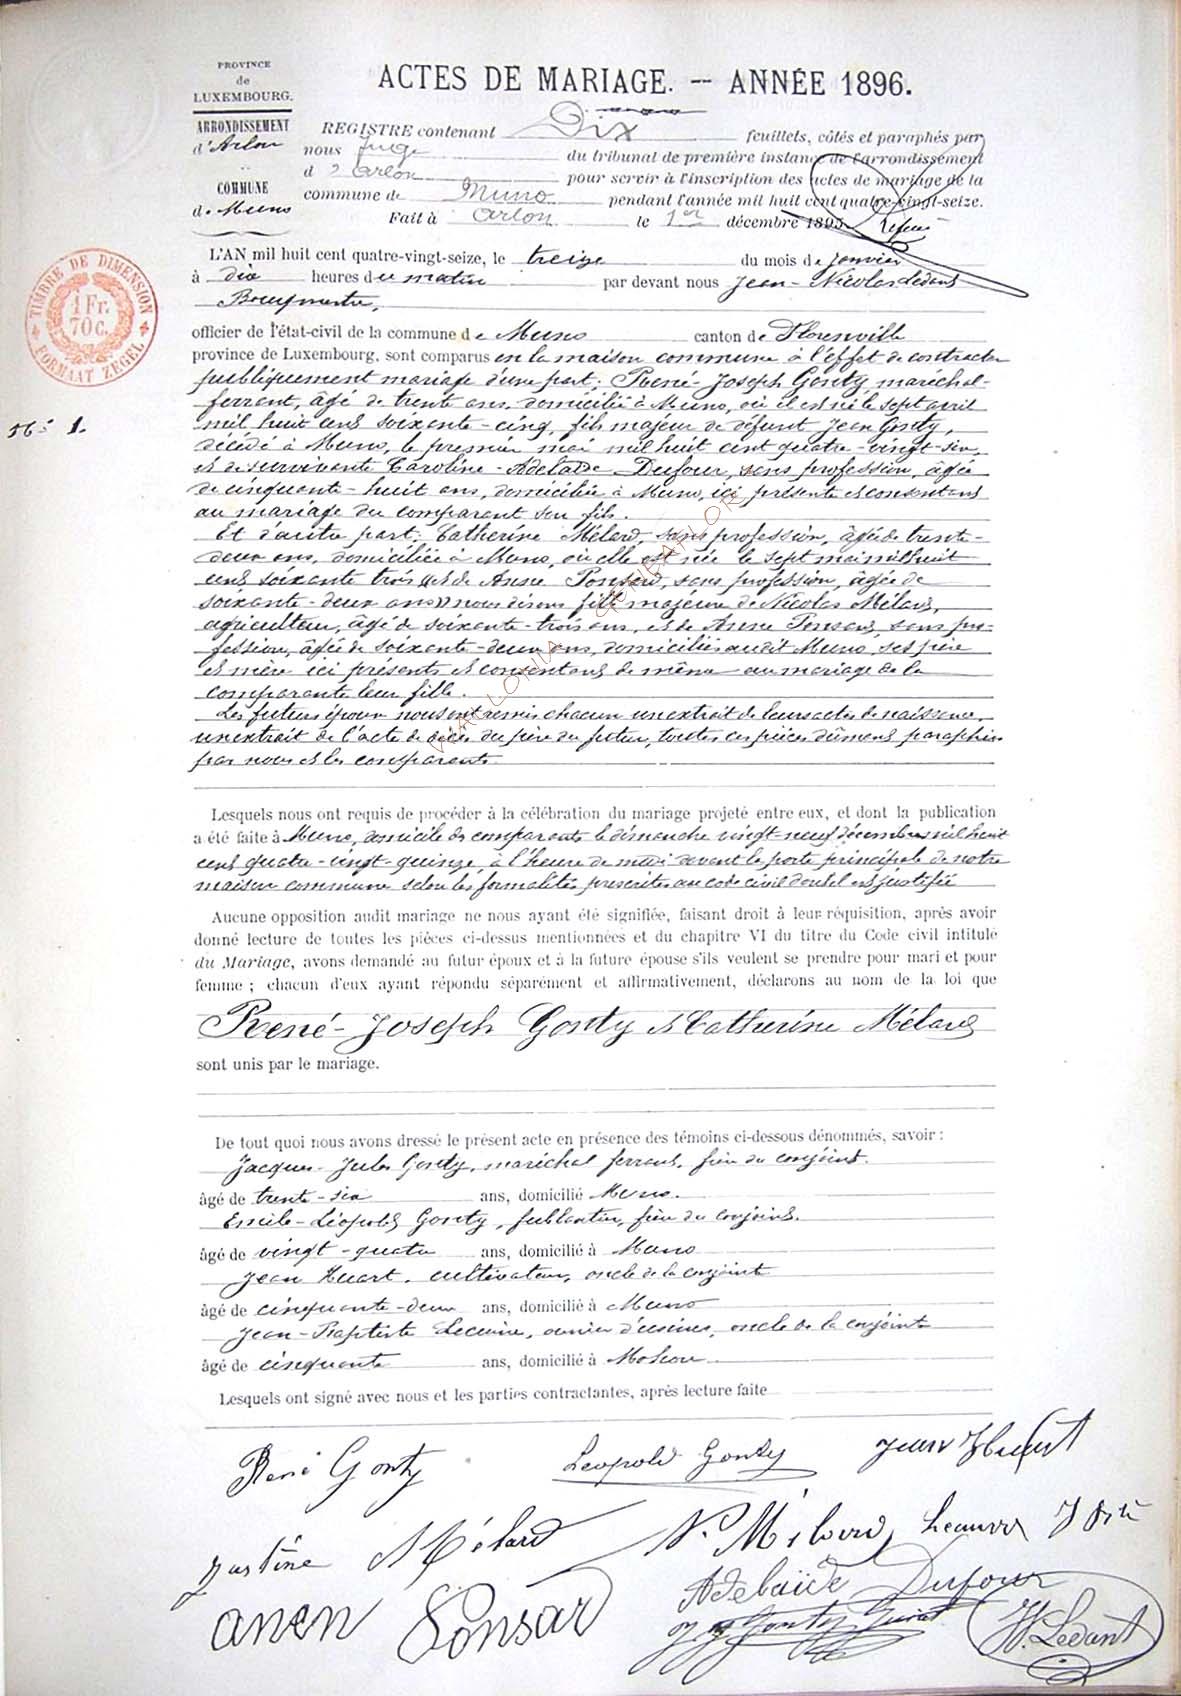 PROVINCE
de
LUXEMBOURG.
ARRONDISSEMENT
d'Arlon
COMMUNE
de Muno
ACTES DE MARIAGE. -- ANNÉE 1896.
REGISTRE contenant Dix feuillets, côtés et paraphés par
nous Juge du tribunal de première instance de l'arrondissement
d'Arlon pour servir à l'inscription des actes de mariage de la
commune de Muno pendant l'année mil huit cent quatre-vingt-seize.
Fait à Arlon le 1er décembre 1895.
TIMBRE DE DIMENSION
1 Fr.
70 C.
FORMAAT ZEGEL
L'AN mil huit cent quatre-vingt-seize, le treize du mois de Janvier
à dix heures du matin par devant nous Jean-Nicolas Ledant
Bourgmestre,
officier de l'état-civil de la commune de Muno canton de Florenville
province de Luxembourg, sont comparus en la maison commune à l'effet de contracter
publiquement mariage d'une part; René-Joseph Gonty, maréchal-
ferrant, âgé de trente ans, domicilié à Muno, où il est né le sept avril
1.
mil huit cent soixante-cinq, fils majeur de défunt Jean Gonty,
décédé à Muno, le premier mai mil huit cent quatre-vingt-six,
et de survivante Caroline-Adelaïde Dufour, sans profession, âgée
de cinquante-huit ans, domiciliée à Muno, ici présente et consentant
au mariage du comparant son fils.
Et d'autre part; Catherine Mélard, sans profession, âgée de trente-
deux ans, domiciliée à Muno, où elle est née le sept mai mil huit
cent soixante trois et de Anne Ponsard, sans profession, âgée de
soixante-deux ans)) nous disons fille majeure de Nicolas Mélard,
agriculteur, âgé de soixante-trois ans, et de Anne Ponsard, sans pro-
fession, âgée de soixante-deux ans, domiciliés audit Muno, ses père
et mère ici présents et consentant de même au mariage de la
comparante leur fille.
Les futurs époux nous ont remis chacun un extrait de leurs actes de naissance,
un extrait de l'acte de décès du père du futur, toutes ces pièces dûment paraphées
par nous et les comparants.
WALLONIA GENEAFLOR
Lesquels nous ont requis de procéder à la célébration du mariage projeté entre eux, et dont la publication
a été faite à Muno, domicile des comparants le dimanche vingt-neuf décembre mil huit
cent quatre-vingt-quinze, à l'heure de midi devant la porte principale de notre
maison commune selon les formalités prescrites au code civil dont il est justifié
Aucune opposition audit mariage ne nous ayant été signifiée, faisant droit à leur réquisition, après avoir
donné lecture de toutes les pièces ci-dessus mentionnées et du chapitre VI du titre du Code civil intitulé
du Mariage, avons demandé au futur époux et à la future épouse s'ils veulent se prendre pour mari et pour
femme ; chacun d'eux ayant répondu séparément et affirmativement, déclarons au nom de la loi que
René-Joseph Gonty et Catherine Mélard
sont unis par le mariage.
De tout quoi nous avons dressé le présent acte en présence des témoins ci-dessous dénommés, savoir :
Jacques-Jules Gonty, maréchal ferrant, frère du conjoint.
âgé de trente-six ans, domicilié Muno.
Emile-Léopold Gonty, ferblantier, frère du conjoint.
âgé de vingt-quatre ans, domicilié à Muno
Jean Huart, cultivateur, oncle de la conjointe
âgé de cinquante-deux ans, domicilié à Muno
Jean-Baptiste ouvrier d'usines, oncle de la conjointe
âgé de cinquante ans, domicilié à
Lesquels ont signé avec nous et les parties contractantes, après lecture faite
René Gonty Léopold Gonty Jean Huart
Mélard N. Mélard
Adelaïde Dufour
anen Ponsard Gonty N. Ledant